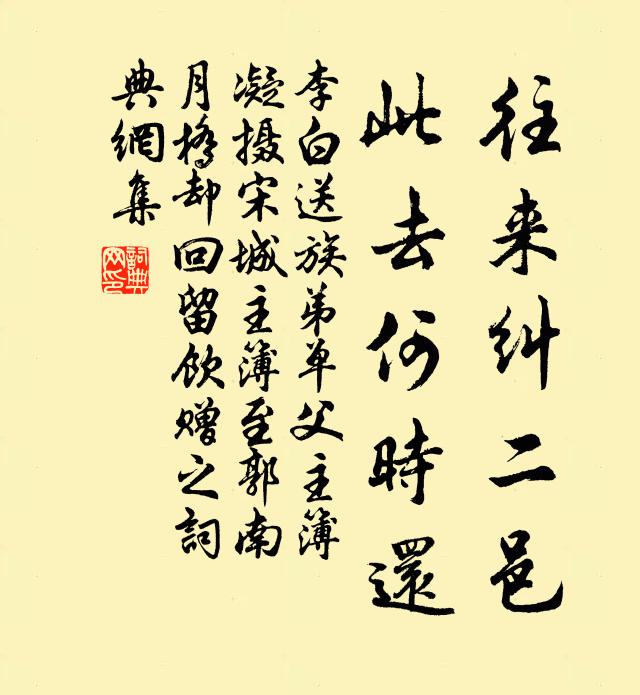 往来糾二邑
此去何時還
李白送族弟单父主簿
凝摄宋城主簿至郭南
月橋却回留飲赠之詞
典網集
詞典
网印